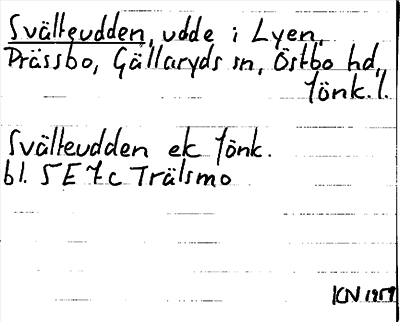 Svälteudden, udde i Lyen,
Prässbo, Gällaryds sn, Östbo hd,
Jönk. l.
Svälteudden ek Jönk.
bl. 5 E 7c Trälsmo
KN 1959